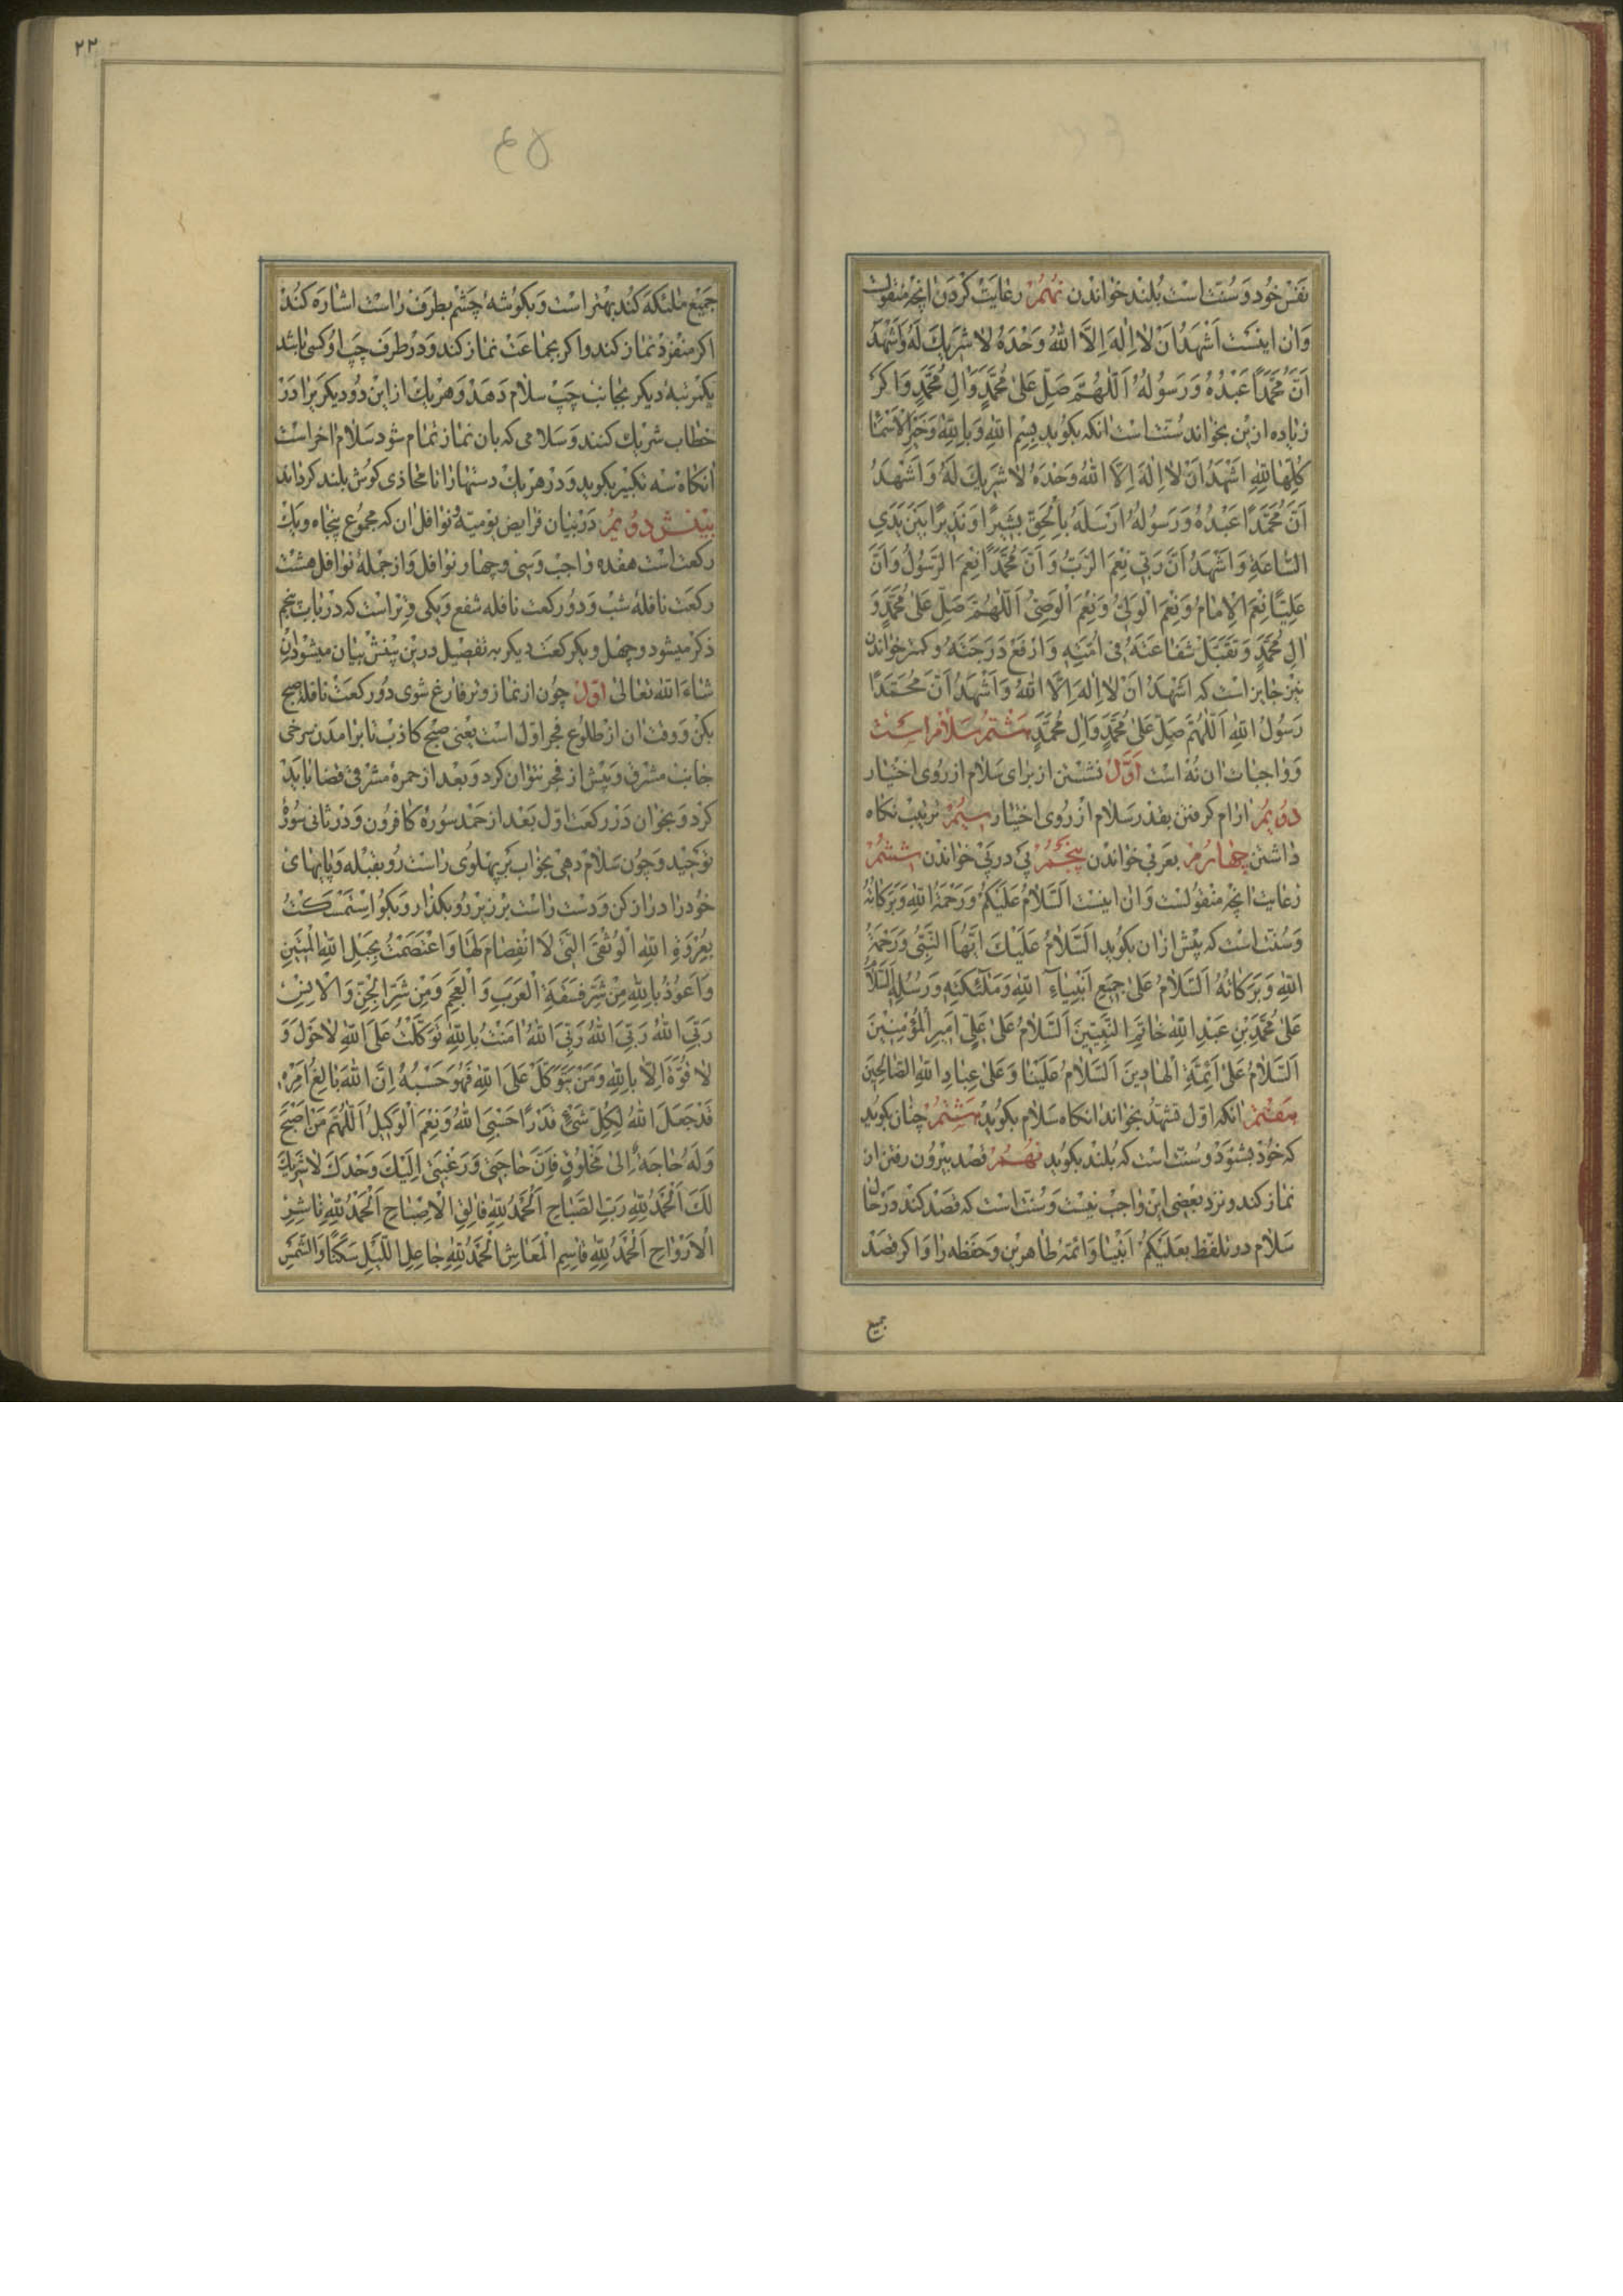 نفس خود و سنّت است بلند خواندن نهم رعایت کردن انچه منقولست
وان اینست اَشْهَدُ اَنْ لا اِلهَ اِلَّا اللهُ وَحْدَهُ لا شَرِیكَ لَهُ وَاَشْهَدُ
اَنَّ مُحَمَّدًا عَبْدُهُ وَرَسُولُهُ اَللّهُمَّ صَلِّ عَلی مُحَمَّدٍ وَالِ مُحَمَّدٍ واکر
زیاده ازین بخواند سنّت است انکه بکوید بِسْمِ اللهِ وَبِاللهِ وَخَیْرُ الْاَسْمآءِ
کُلِّهَا لِلّهِ اَشْهَدُ اَنْ لا اِلهَ اِلَّا اللهُ وَحْدَهُ لا شَرِیكَ لَهُ وَاَشْهَدُ
اَنَّ مُحَمَّدًا عَبْدُهُ وَرَسُولُهُ اَرْسَلَهُ بِالْحَقِّ بَشِیرًا وَنَذِیرًا بَیْنَ یَدَیِ
السّاعَةِ وَاَشْهَدُ اَنَّ رَبّی نِعْمَ الرَّبُّ وَاَنَّ مُحَمَّدًا نِعْمَ الرَّسُولُ وَاَنَّ
عَلِیًّا نِعْمَ الْاِمامُ وَنِعْمَ الْوَلِیُّ وَنِعْمَ الْوَصِیُّ اَللّهُمَّ صَلِّ عَلی مُحَمَّدٍ وَ
الِ مُحَمَّدٍ وَتَقَبَّلْ شَفاعَتَهُ فی اُمَّتِهِ وَارْفَعْ دَرَجَتَهُ وکمتر خواندن
نیز جایز است که اَشْهَدُ اَنْ لا اِلهَ اِلَّا اللهُ وَاَشْهَدُ اَنَّ مُحَمَّدًا
رَسُولُ اللهِ اَللّهُمَّ صَلِّ عَلی مُحَمَّدٍ وَالِ مُحَمَّدٍ هشتم سلام است
و واجبات ان نه است اوّل نشستن از برای سلام از روی اختیار
دویم ارام کرفتن بقدر سلام از روی اختیار سیم ترتیب نکاه
داشتن چهارم بعربی خواندن پنجم پی در پی خواندن ششم
رعایت انچه منقولست وان اینست اَلسَّلامُ عَلَیْکُمْ وَرَحْمَةُ اللهِ وَبَرَکاتُهُ
و سنّت است که پیش ازان بکوید اَلسَّلامُ عَلَیْكَ اَیُّهَا النَّبِیُّ وَرَحْمَةُ
اللهِ وَبَرَکاتُهُ اَلسَّلامُ عَلی جَمِیعِ اَنْبِیآءِ اللهِ وَمَلٰئِکَتِهِ وَرُسُلِهِ اَلسَّلامُ
عَلی مُحَمَّدِ بْنِ عَبْدِ اللهِ خاتَمِ النَّبِیّینَ اَلسَّلامُ عَلی عَلِیٍّ اَمِیرِ الْمُؤْمِنِینَ
اَلسَّلامُ عَلی اَئِمَّةِ الْهادِینَ اَلسَّلامُ عَلَیْنا وَعَلی عِبادِ اللهِ الصّالِحِینَ
هفتم انکه اوّل تشهّد بخواند انکاه سلام بکوید هشتم چنان بکوید
که خود بشنود و سنّت است که بلند بکوید نهم قصد بیرون رفتن از
نماز کند و نزد بعضی این واجب نیست و سنّت است که قصد کند در حال
سلام در تلفّظ بعلیکم انبیا و ائمّهٔ طاهرین و حفظه را و اکر قصد
جمیع
۲۲
جمیع ملئکه کند بهتر است و بکوشهٔ چشم بطرف راست اشاره کند
اکر منفرد نماز کند و اکر بجماعت نماز کند و در طرف چپ او کسی باشد
یکمرتبهٔ دیکر بجانب چپ سلام دهد و هریك از این دو دیکر برا در
خطاب شریك کنند و سلامی که بان نماز تمام شود سلام اخر است
انکاه سه تکبیر بکوید و در هریك دستها را تا محاذی کوش بلند کرداند
بینش دویم در بیان فرایض یومیّه و نوافل ان که مجموع پنجاه و یك
رکعت است هفده واجب و سی و چهار نوافل و از جملهٔ نوافل هشت
رکعت نافلهٔ شب و دو رکعت نافله شفع و یکی وتر است که در باب پنجم
ذکر میشود و چهل و یکرکعت دیکر به تفصیل درین بینش بیان میشود ان
شاء الله تعالی اوّل چون از نماز وتر فارغ شوی دو رکعت نافله صبح
بکن و وقت ان از طلوع فجر اوّل است یعنی صبح کاذب تا برامدن سرخی
جانب مشرق و پیش از فجر نتوان کرد و بعد از حمره مشرقی قضا باید
کرد و بخوان در رکعت اوّل بعد از حمد سوره کافرون و در ثانی سوره
توحید و چون سلام دهی بخواب بر پهلوی راست رو بقبله و پایهای
خود را دراز کن و دست راست بر زیر رو بکذار و بکو اِسْتَمْسَکْتُ
بِعُرْوَةِ اللهِ الْوُثْقَی الَّتی لَا انْفِصامَ لَها وَاعْتَصَمْتُ بِحَبْلِ اللهِ الْمَتِینِ
وَاَعُوذُ بِاللهِ مِنْ شَرِّ فَسَقَةِ الْعَرَبِ وَالْعَجَمِ وَمِنْ شَرِّ الْجِنِّ وَالْاِنْسِ
رَبِّیَ اللهُ رَبِّیَ اللهُ رَبِّیَ اللهُ امَنْتُ بِاللهِ تَوَکَّلْتُ عَلَی اللهِ لا حَوْلَ وَ
لا قُوَّةَ اِلّا بِاللهِ وَمَنْ یَتَوَکَّلْ عَلَی اللهِ فَهُوَ حَسْبُهُ اِنَّ اللهَ بالِغُ اَمْرِهِ
قَدْ جَعَلَ اللهُ لِکُلِّ شَیْءٍ قَدْرًا حَسْبِیَ اللهُ وَنِعْمَ الْوَکِیلُ اَللّهُمَّ مَنْ اَصْبَحَ
وَلَهُ حاجَةٌ اِلی مَخْلُوقٍ فَاِنَّ حاجَتی وَرَغْبَتی اِلَیْكَ وَحْدَكَ لا شَرِیكَ
لَكَ اَلْحَمْدُ لِلّهِ رَبِّ الصَّباحِ اَلْحَمْدُ لِلّهِ فالِقِ الْاِصْباحِ اَلْحَمْدُ لِلّهِ ناشِرِ
الْاَرْواحِ اَلْحَمْدُ لِلّهِ قاسِمِ الْمَعاشِ اَلْحَمْدُ لِلّهِ جاعِلِ اللَّیْلِ سَکَنًا وَالشَّمْسِ